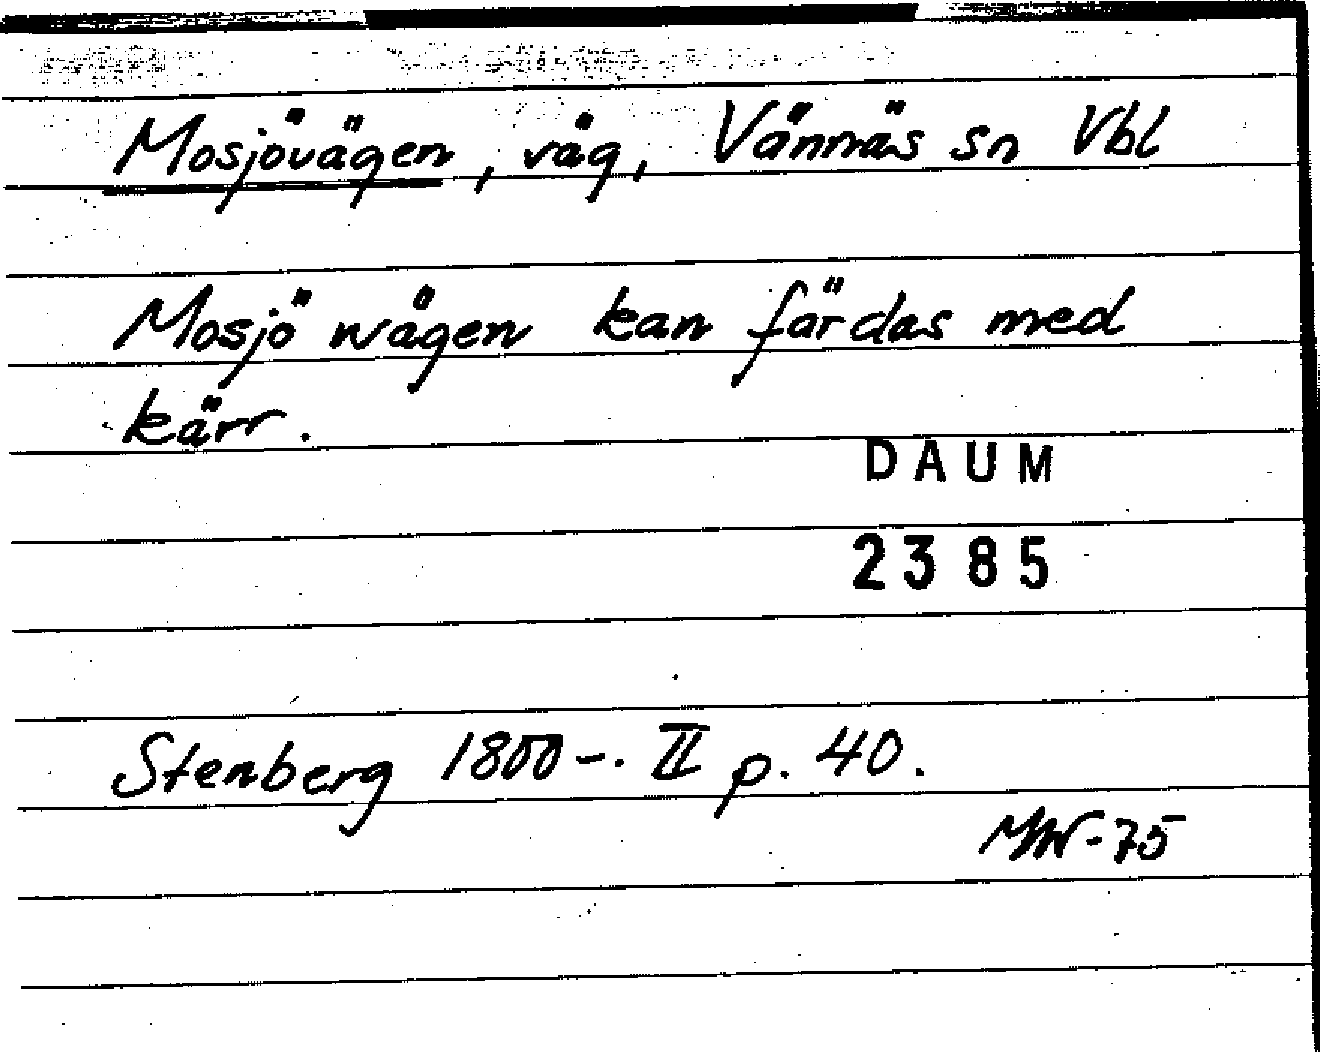 Mosjövägen, väg, Vännäs sn Vbl
Mosjö wägen kan färdas med
kärr.
DAUM
2385
Stenberg 1800-. II p. 40.
MW-75